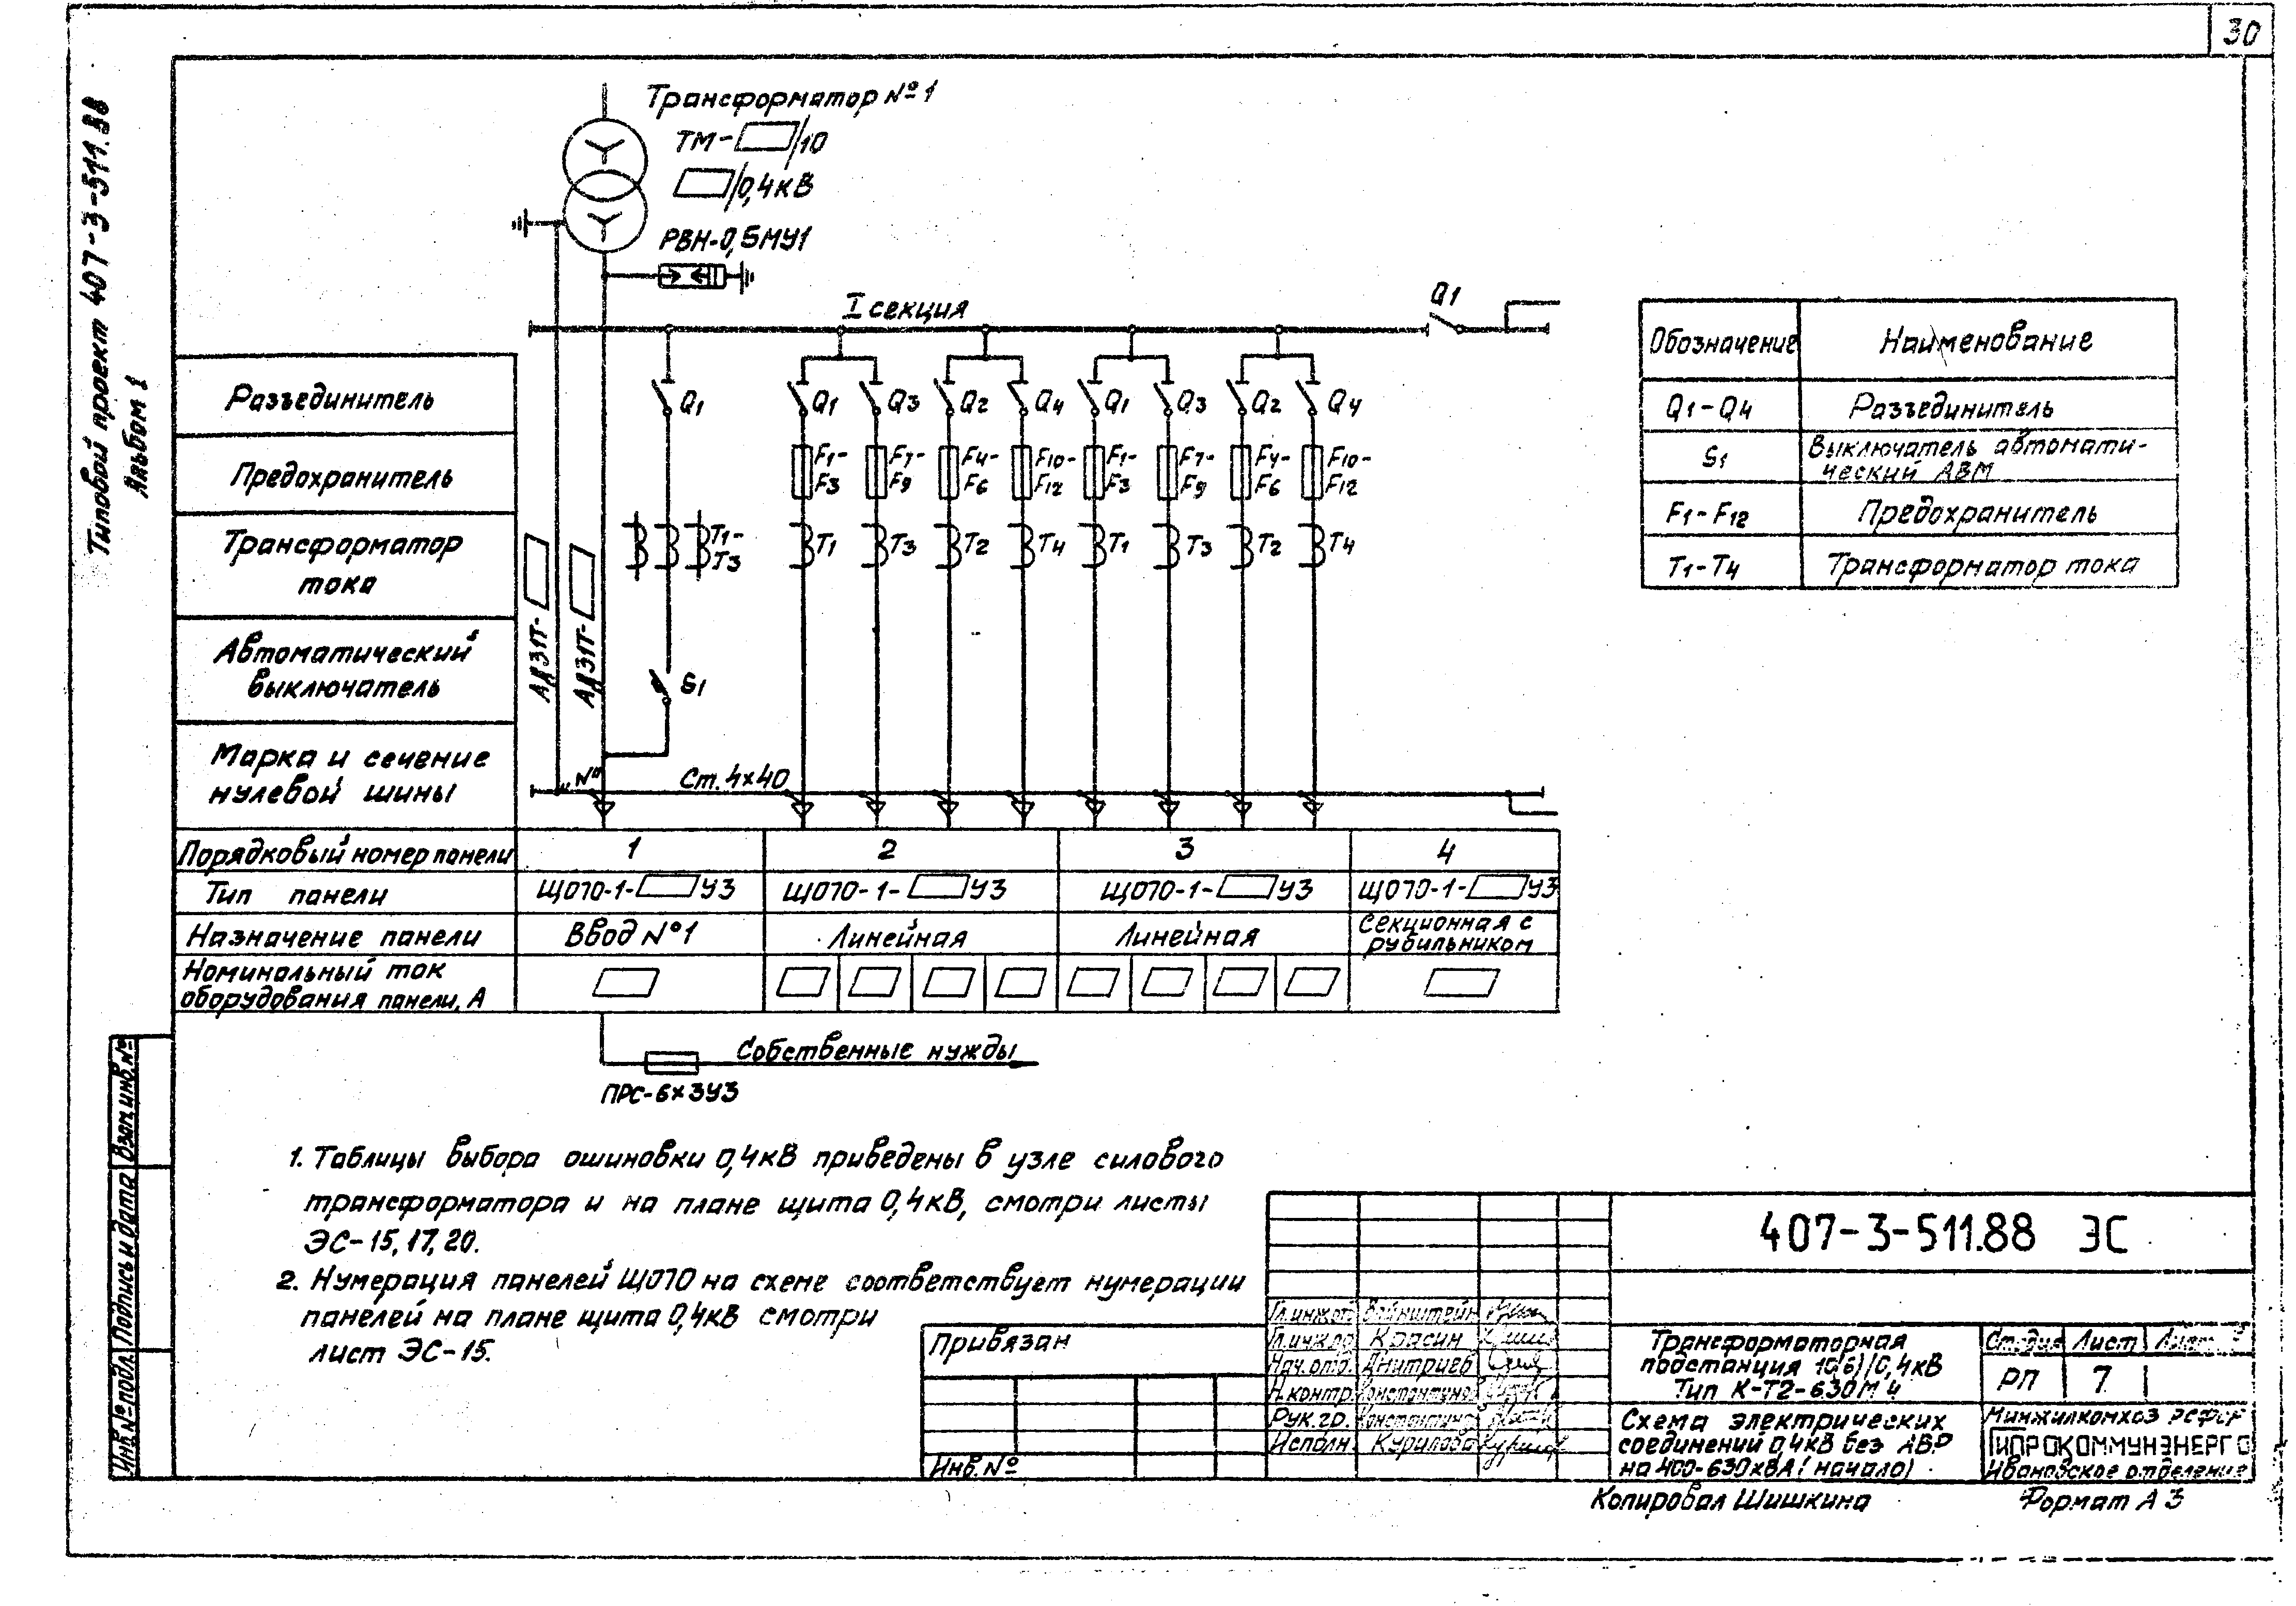 30
Типовой проект 407-3-511.88
Альбом 1
Трансформатор №1
ТМ-▱/10
▱/0,4кВ
РВН-0,5МУ1
I секция
Q1
Обозначение
Наименование
Q1-Q4
Разъединитель
S1
Выключатель автомати-
ческий АВМ
F1-F12
Предохранитель
T1-T4
Трансформатор тока
Разъединитель
Q1
Q1
Q3
Q2
Q4
Q1
Q3
Q2
Q4
Предохранитель
F1-
F3
F7-
F9
F4-
F6
F10-
F12
F1-
F3
F7-
F9
F4-
F6
F10-
F12
Трансформатор
тока
T1-
T3
T1
T3
T2
T4
T1
T3
T2
T4
АД31Т-
АД31Т-
Автоматический
выключатель
S1
Марка и сечение
нулевой шины
„N"
Ст. 4х40
Порядковый номер панели
1
2
3
4
Тип панели
ЩО70-1-▱У3
ЩО70-1-▱У3
ЩО70-1-▱У3
ЩО70-1-▱У3
Назначение панели
Ввод №1
Линейная
Линейная
Секционная с
рубильником
Номинальный ток
оборудования панели, А
Собственные нужды
ПРС-6х3У3
1. Таблицы выбора ошиновки 0,4кВ приведены в узле силового
трансформатора и на плане щита 0,4кВ, смотри листы
ЭС-15, 17, 20.
2. Нумерация панелей ЩО70 на схеме соответствует нумерации
панелей на плане щита 0,4кВ смотри
лист ЭС-15.
Взам.инв.№
Подпись и дата
Инв.№подл.
Привязан
Инв.№
407-3-511.88 ЭС
Гл.инж.от. Вайнштейн
Гл.инж.пр. Красин
Нач.отд. Дмитриев
Н.контр.
Рук.гр.
Исполн. Курилова
Трансформаторная
подстанция 10(6)/0,4кВ
Тип К-Т2-630М4
Стадия Лист
РП 7
Схема электрических
соединений 0,4кВ без АВР
на 400-630кВА (начало)
Минжилкомхоз РСФСР
ГИПРОКОММУНЭНЕРГО
Ивановское отделение
Копировал Шишкина
Формат А3